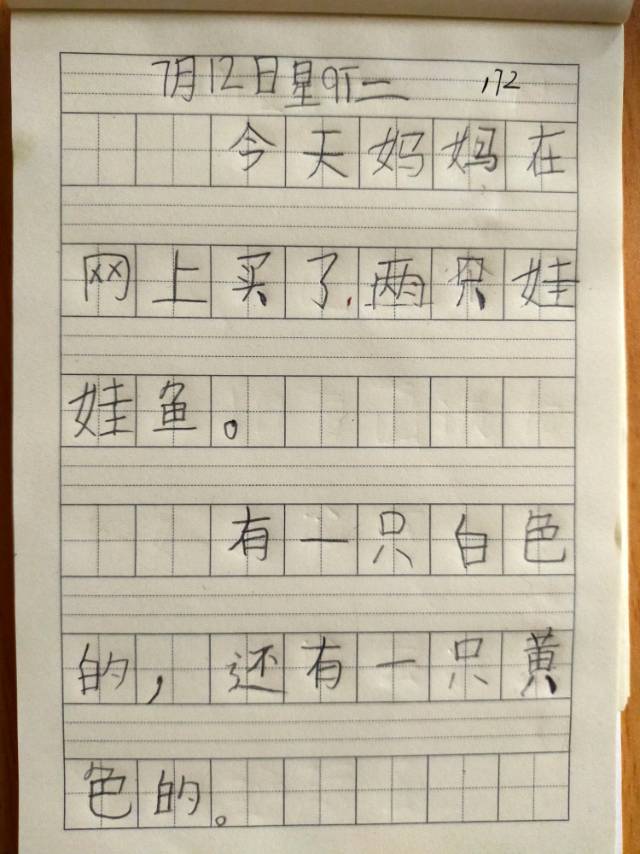 7月12日星qT二
今天妈妈在
网上买了两只娃
娃鱼。
有一只白色
的，还有一只黄
色的。